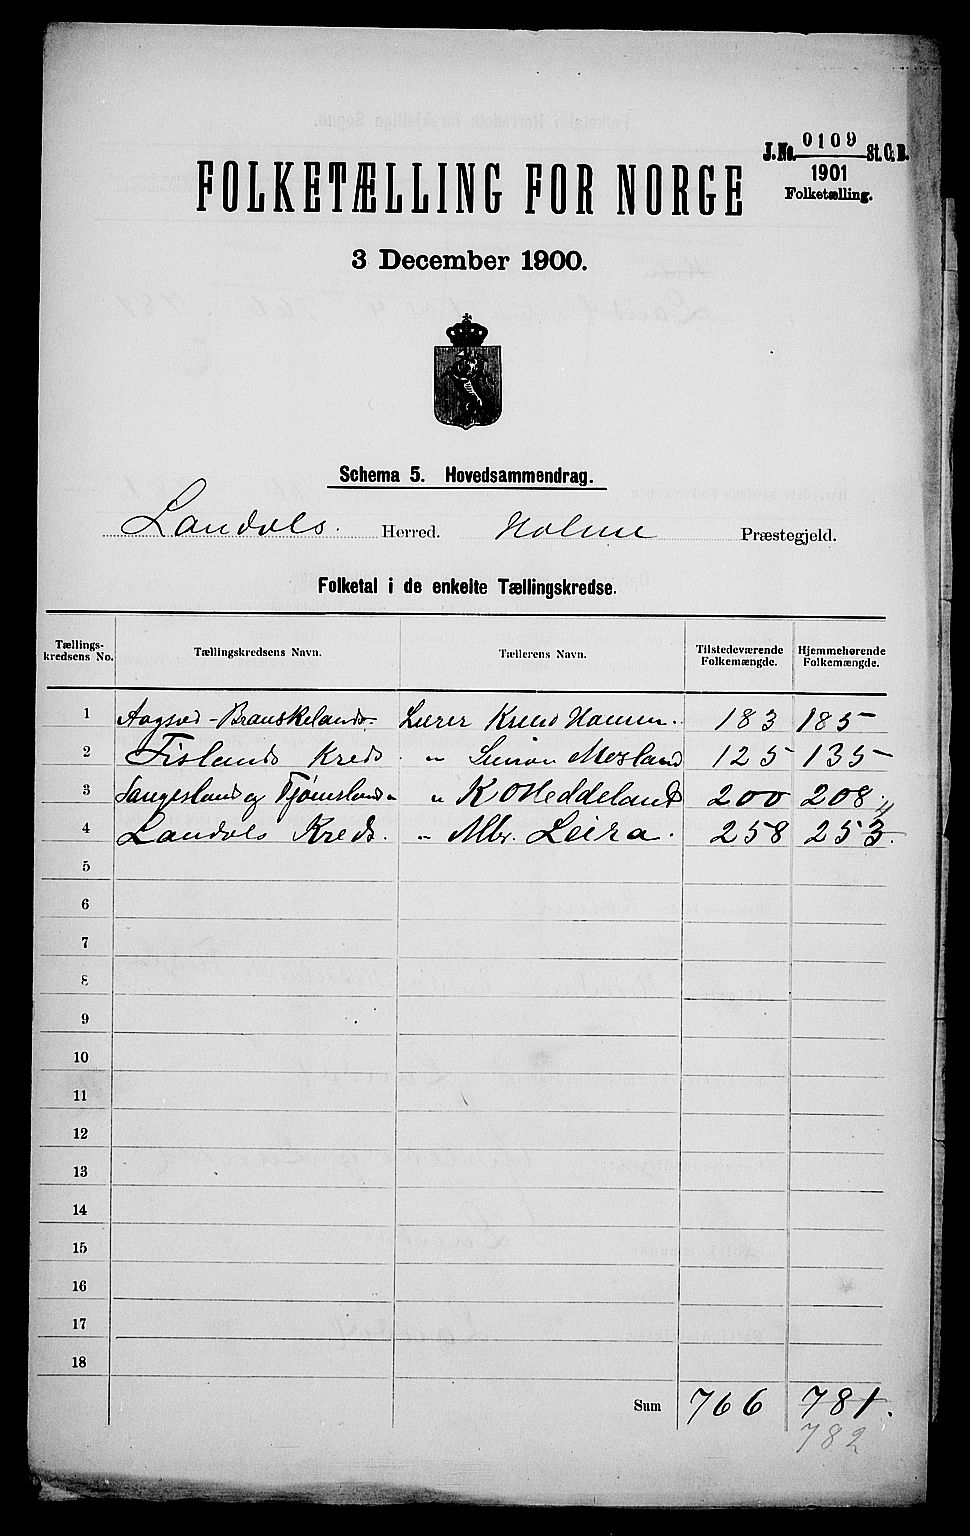 J.No. 0109 St.C.B.
1901
Folketælling.
FOLKETÆLLING FOR NORGE
3 December 1900.
Schema 5. Hovedsammendrag.
Landvls. Herred. Holme Præstegjeld.
Folketal i de enkelte Tællingskredse.
Tællings-kredsens No. Tællingskredsens Navn. Tællerens Navn. Tilstedeværende Folkemængde. Hjemmehørende Folkemængde.
1 Lærer 183 185
2 Fislands Kreds. " Mesland 125 135
3 " K Heddeland 200 208
4 Kreds. " Leira. 258 253. 4
5
6
7
8
9
10
11
12
13
14
15
16
17
18
Sum 766 781.
782